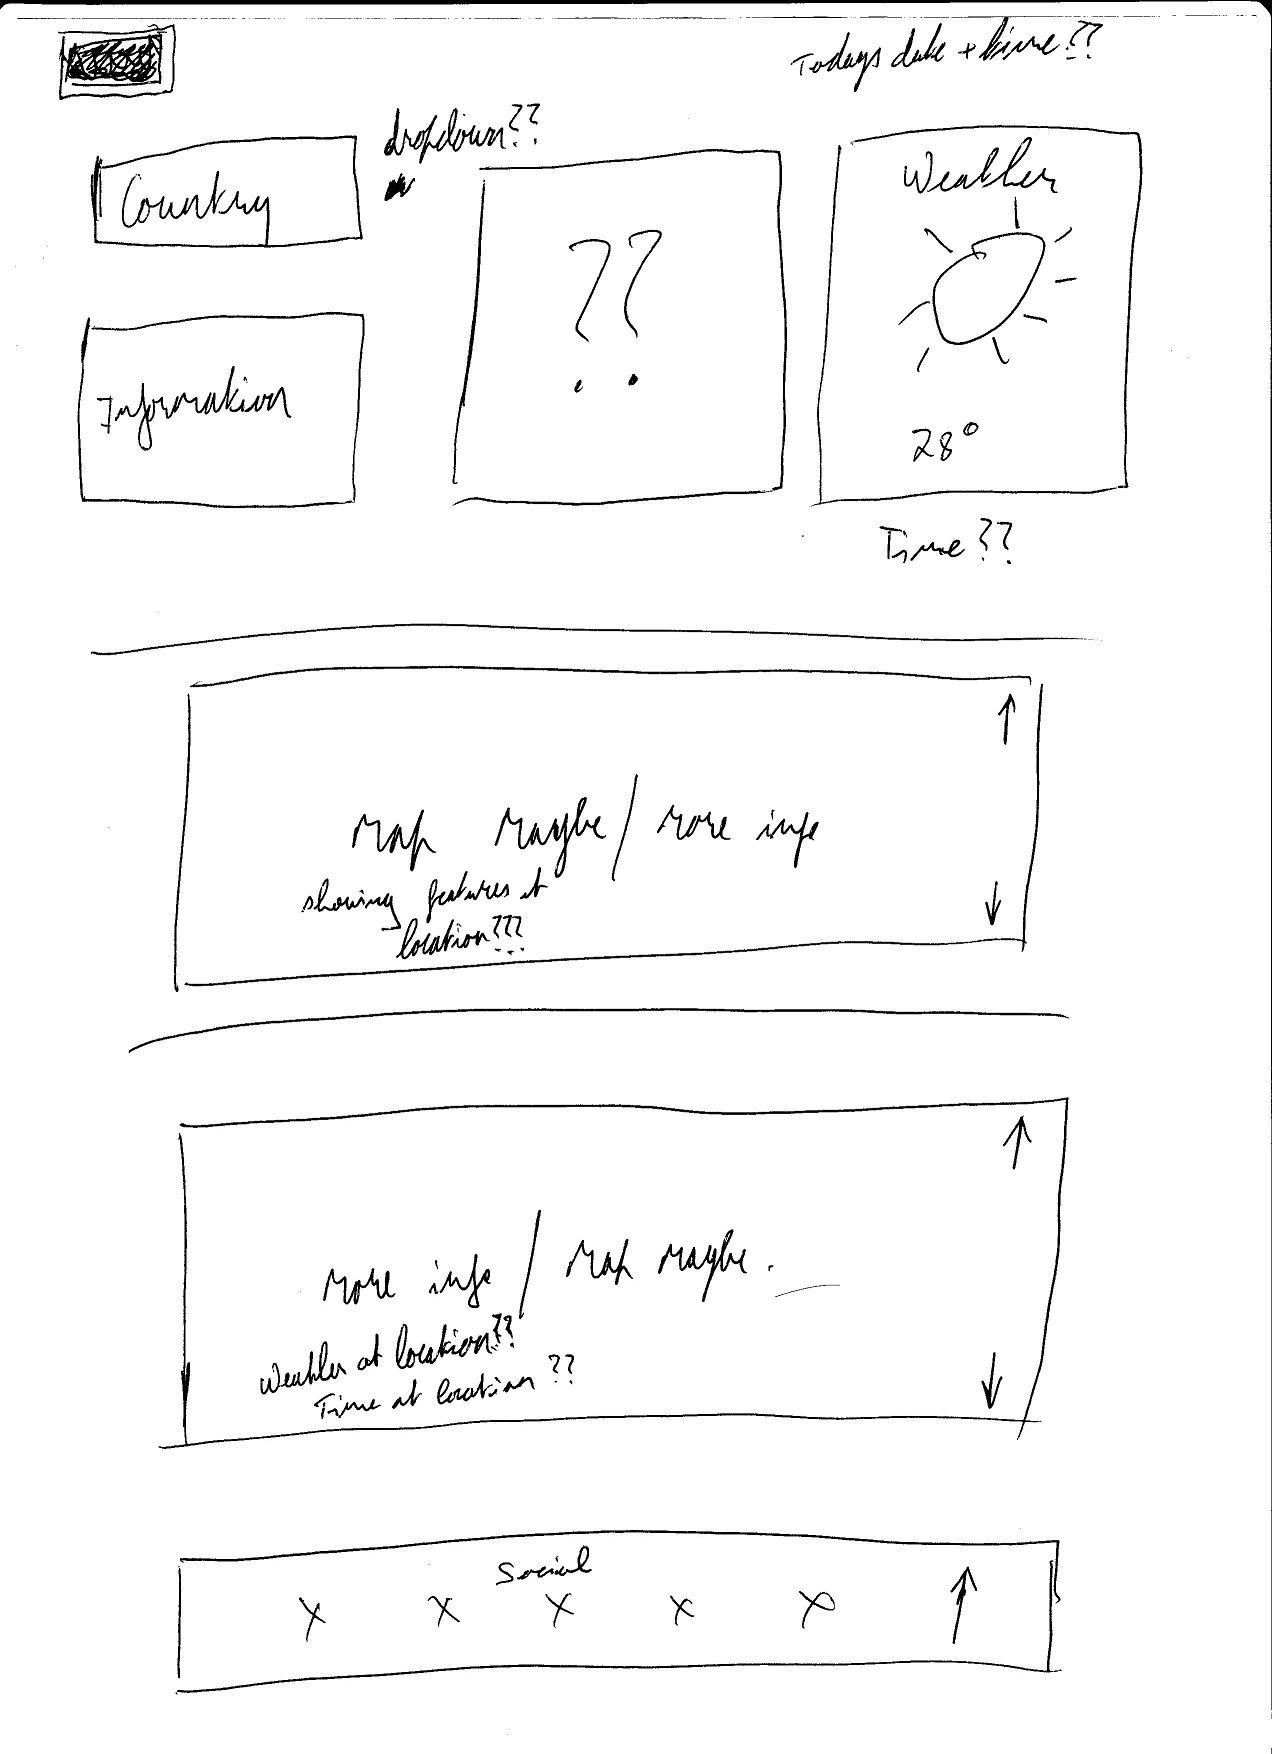 Todays date + time??
dropdown??
Country
??
Weather
28°
Information
Time??
Map Maybe / More info
showing features at
location???
More info / Map Maybe.
Weather at location??
Time at location ??
Social
X X X X X